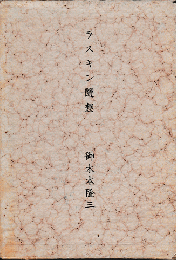 ラスキン随想
御木本隆三